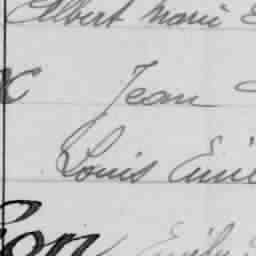 Albert Marie
x Jean
Louis Emi
on Emile